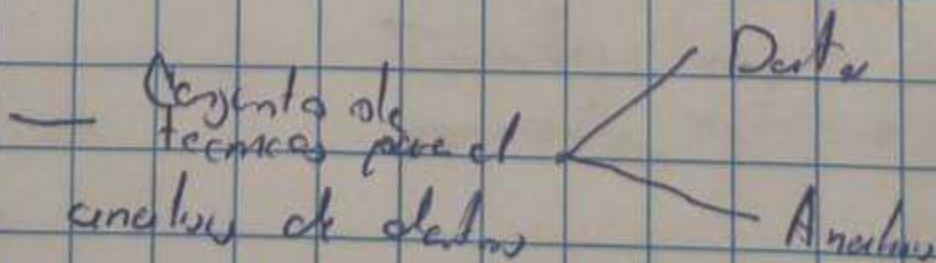 — Conjunto de
técnicas para el
analisis de datos
Data
Analisis